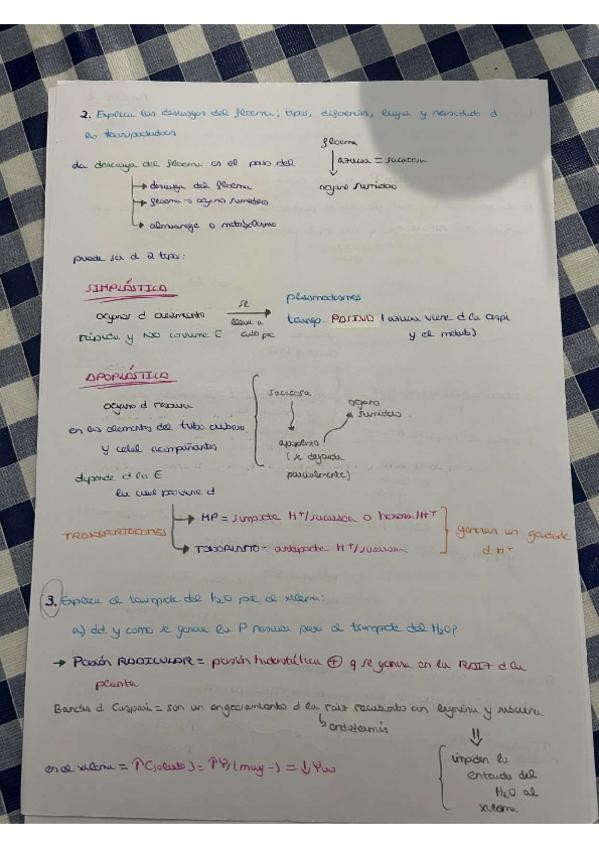 2. Explica las descargas del floema: tipos, diferencias, lugar y necesidad d
los transportadores
floema
azúcar = sacarosa
órgano sumidero
La descarga del floema es el paso del
descarga del floema
floema → órgano sumidero
almacenaje o metabolismo
puede ser d 2 tipos:
SIMPLÁSTICA
órganos d crecimiento
rápida y NO consume E
se
lleva a
cabo por
plasmodesmos
transp. PASIVO (azúcar viene d la respi
y el metab)
APOPLÁSTICA
órgano d reserva
en los elementos del tubo criboso
y célul acompañantes
depende d la E
la cual proviene d
sacarosa
apoplasto
(se degrada
parcialmente)
órgano
sumidero
TRANSPORTADORES
MP = simporte H+/sacarosa o hexosa/H+
TONOPLASTO = antiporte H+/sacarosa
generan un gradiente
d H+
3. Explica el transporte del H2O por el xilema:
a) dd y como se genera la P necesaria para el transporte del H2O?
→ Presión RADICULAR = presión hidrostática (+) q se genera en la RAÍZ d la
planta
Bandas d Caspari = son un engrosamiento d la raíz recubierto con lignina y suberina
endodermis
impiden la
entrada del
H2O al
xilema
en el xilema = ↑C(soluto) = ↑Ψs (muy -) = ↓Ψw